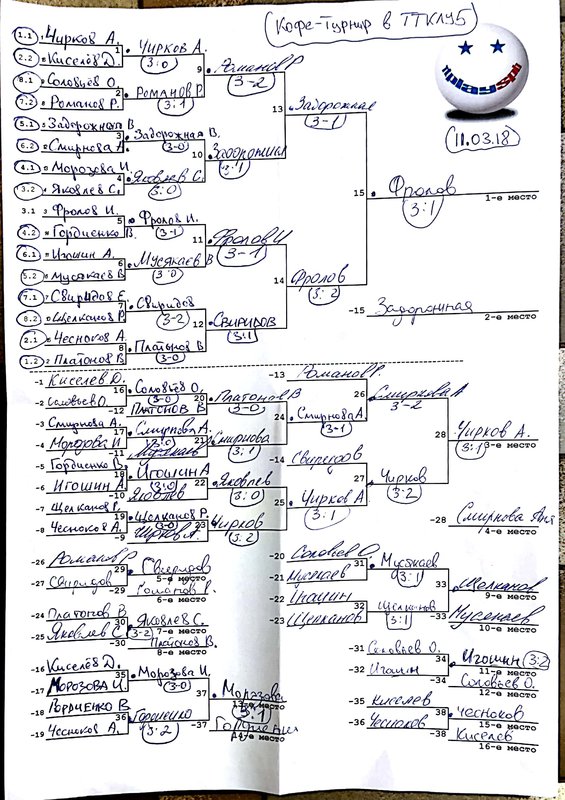 Кофе-Турнир в ТТКЛУБ
11.03.18
1.1 Чирков А.
2.2 Киселёв Д.
1 Чирков А.
3:0
8.1 Соловьёв О.
7.2 Романов Р.
2 Романов Р.
3:1
9 Романов Р
3-2
5.1 Задорожная В.
6.2 Смирнова А.
3 Задорожная В.
3-0
4.1 Морозова И.
3.2 Яковлев С.
4 Яковлев С.
3:0
10 Задорожная
3:1
13 Задорожная
3-1
3.1 Фролов И.
4.2 Гордиенко В.
5 Фролов И.
3-1
6.1 Игошин А.
5.2 Мусякаев В
6 Мусякаев В
3:0
11 Фролов И
3-1
7.1 Свиридов Е.
8.2 Щелканов Р.
7 Свиридов
3-2
2.1 Чесноков А.
1.2 Платонов В
8 Платонов В
3-0
12 Свиридов
3:1
14 Фролов
3:2
15 Фролов
3:1
1-е место
-15 Задорожная
2-е место
-1 Киселев Д.
-2 Соловьев О.
16 Соловьёв О.
3-0
-12 Платонов В
20 Платонов В
3-0
-3 Смирнова А.
-4 Морозова И
17 Смирнова А.
3:0
-11 Мусякаев
21 Смирнова
3:1
24 Смирнова А
3-1
-13 Романов Р.
26 Смирнова А
3-2
-5 Гордиенко В.
-6 Игошин А.
18 Игошин А
3:0
-10 Яковлев
22 Яковлев
3:0
-7 Щелканов Р.
-8 Чесноков А.
19 Щелканов Р.
3-0
-9 Чирков А.
23 Чирков
3:2
25 Чирков А
3:1
-14 Свиридов
27 Чирков
3:2
28 Чирков А.
3:1
3-е место
-28 Смирнова
4-е место
-26 Романов Р
-27 Свиридов
29 Свиридов
5-е место
-29 Романов Р.
6-е место
-24 Платонов В.
-25 Яковлев С
30 Яковлев С.
3-2
7-е место
-30 Платонов В.
8-е место
-20 Соловьев О.
-21 Мусякаев
31 Мусякаев
3:1
-22 Игошин
-23 Щелканов
32 Щелканов
3:1
33 Щелканов
9-е место
-33 Мусякаев
10-е место
-31 Соловьев О.
-32 Игошин
34 Игошин 3:2
11-е место
-34 Соловьев О.
12-е место
-16 Киселёв Д.
-17 Морозова И.
35 Морозова И.
3-0
-18 Гордиенко В
-19 Чесноков А.
36 Гордиенко
3:2
37 Морозова
3:1
13-е место
-37 Гордиенко
14-е место
-35 Киселев
-36 Чесноков
38 Чесноков
15-е место
-38 Киселев
16-е место